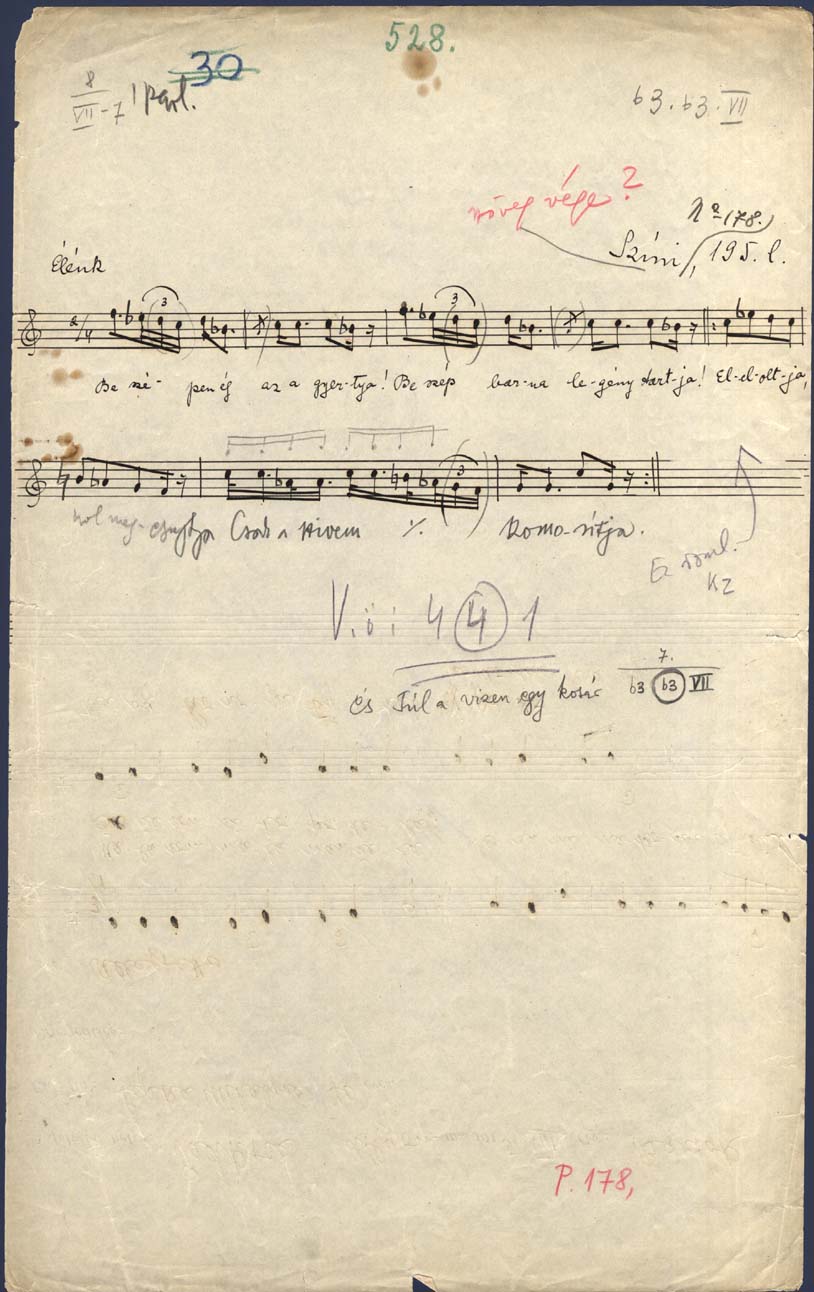 528.
30
8
VII-7
b3. b3. VII
szöveg vége?
No 178.)
Színi, 195. l.
Élénk
3
3
2/4
Be szé- pen ég az a gyer-tya! Be szép bar-na le-gény tart-ja! El-el-olt-ja,
3
hol meg- Csak a szivem ·/. Komo-rítja.
KZ
V.ö: 441
és Túl a vizen egy kosár
7.
b3 b3 VII
P. 178,